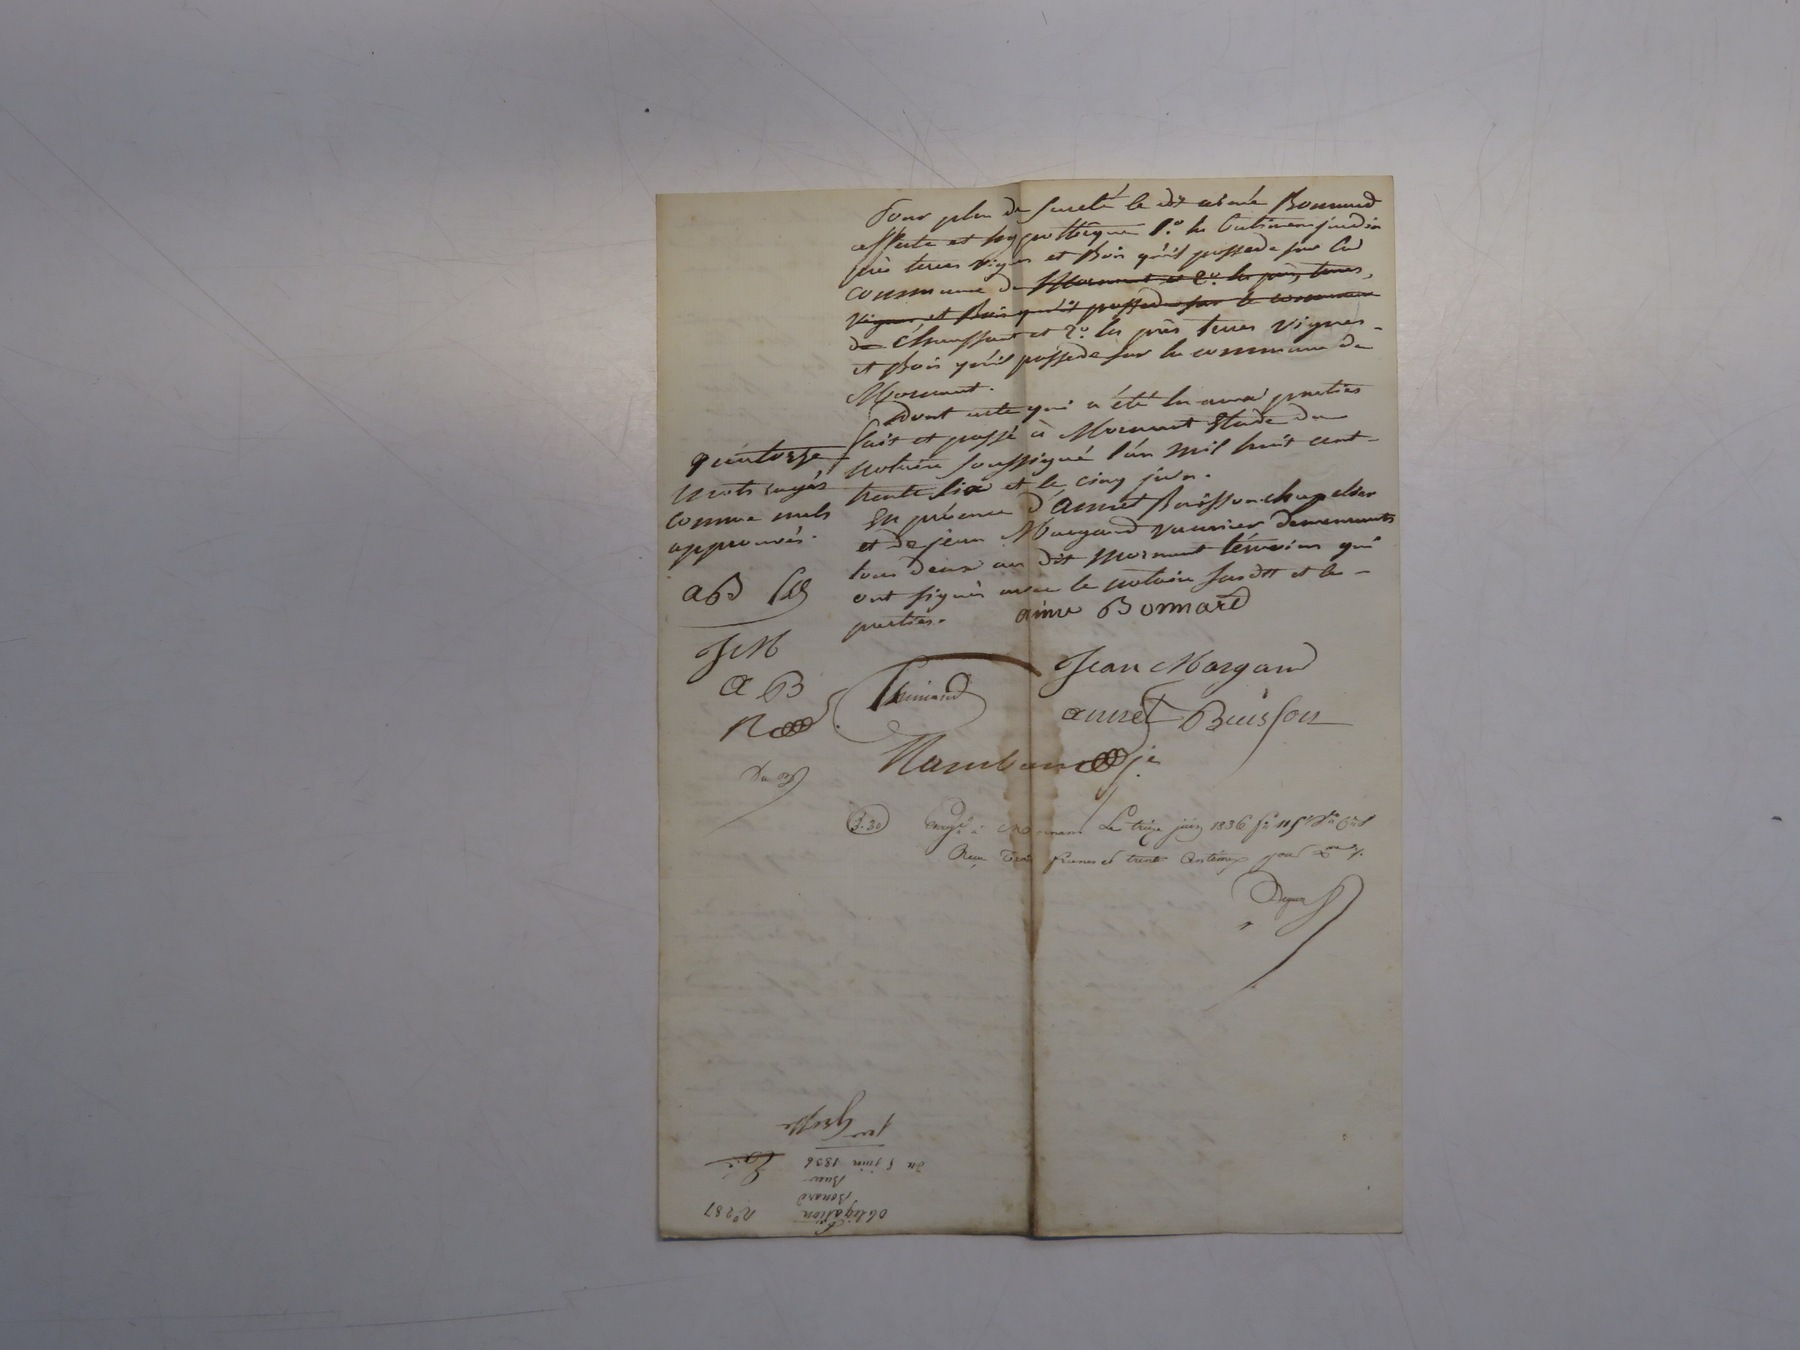 Pour plus de sureté le dit aimé Bonnard
affecte et hypothèque 1.o les batimens jardin
près terres vignes et Bois qu'il possede sur la
commune de Mornant et 2.o les près, terres,
vignes et Bois qu'il possede sur la commune
de Chaussant et 2.o les près terres vignes
et Bois qu'il possede sur la commune de
Mornant.
Dont acte qui a été lu aux parties
fait et passé à Mornant Etude du
notaire soussigné l'an mil huit cent
trente six et le cinq juin.
En présence d'annet Buisson chapelier
et de jean Margand demeurants
tous deux au dit Mornant témoins qui
ont signés avec le notaire susdit et les
parties.
mots rayés
comme nuls
approuvés.
aB
JM
aB
aime Bonnard
Jean Margand
annet Buisson
3.30
à Mornant Le treize juin 1836
Reçu trois francs et trente centimes pour
N.o 287
obligation
Bonard
du 5 juin 1836